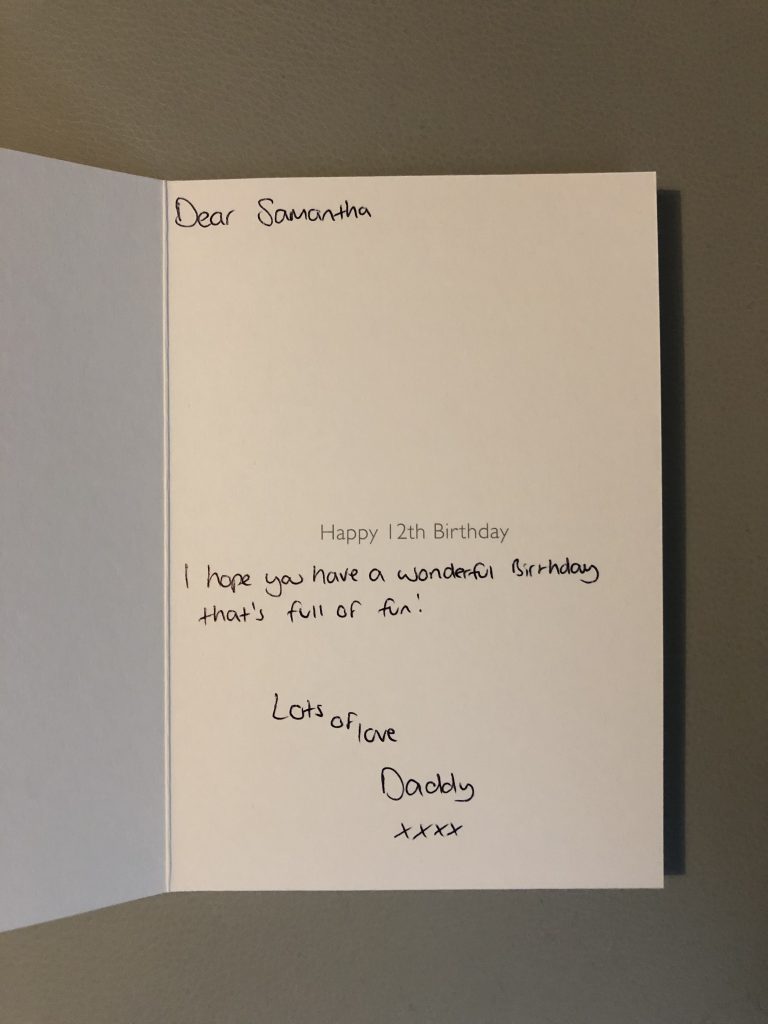 Dear Samantha
Happy 12th Birthday
I hope you have a wonderful Birthday
that's full of fun!
Lots of love
Daddy
xxxx